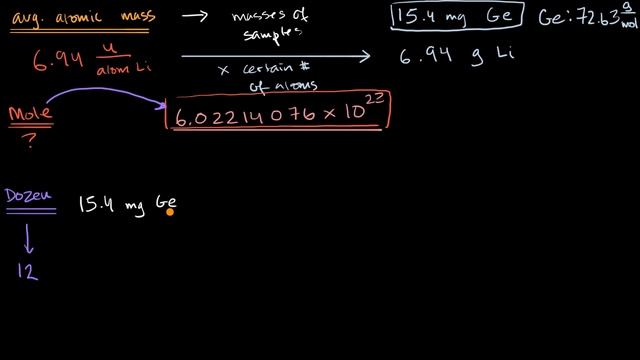 avg. atomic mass → masses of samples
6.94 u/atom Li → 6.94 g Li
x certain # of atoms
15.4 mg Ge
Ge: 72.63 g/mol
Mole
?
6.02214076 x 10^23
Dozen
12
15.4 mg Ge